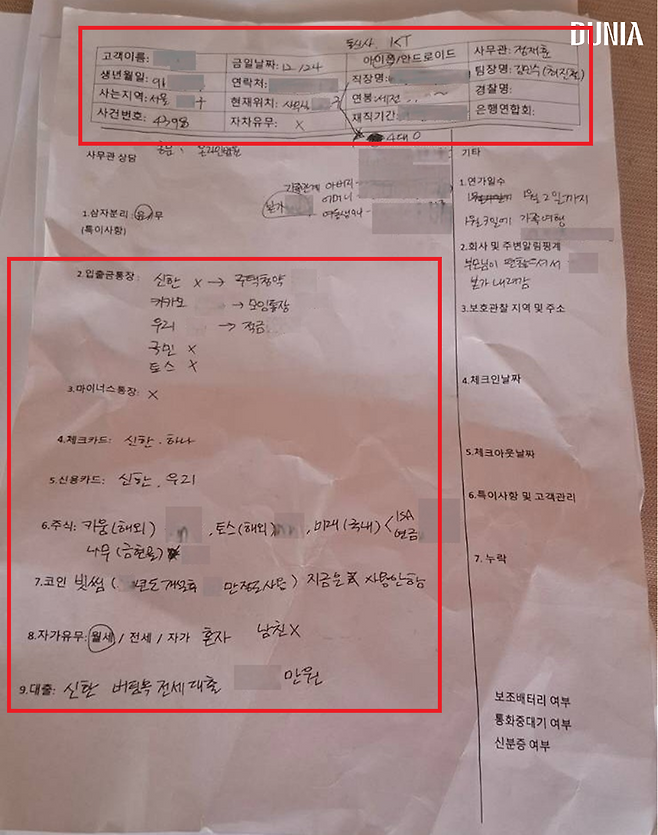 DUNIA
통신사 KT
고객이름: 금일날짜: 12/24 아이폰/안드로이드 사무관: 정재훈
생년월일: 91 연락처: 직장명: 팀장명:
사는지역: 서울 현재위치: 연봉: 세전 경찰명:
사건번호: 4398 자차유무: X 재직기간: 은행연합회:
사무관 상담 온라인법원
기타
가족관계 아버지
본가 어머니
1.삼자분리 유/무
(특이사항)
1.연가일수
1월 2일까지
가족여행
2.회사 및 주변알림핑계
부모님이
본가 내려감
3.보호관찰 지역 및 주소
2.입출금통장: 신한 X → 주택청약
카카오 → 모임통장
우리 → 적금
국민 X
토스 X
3.마이너스통장: X
4.체크카드: 신한. 하나
5.신용카드: 신한. 우리
6.주식: 키움(해외) , 토스(해외) , 미래(국내) < ISA 연금
나무(금현물)
7.코인 빗썸 ( 만정도사용) 지금은 사용안함
8.자가유무: 월세 / 전세 / 자가 혼자 남친X
9.대출: 신한 버팀목 전세대출 만원
4.체크인날짜
5.체크아웃날짜
6.특이사항 및 고객관리
7.누락
보조배터리 여부
통화중대기 여부
신분증 여부